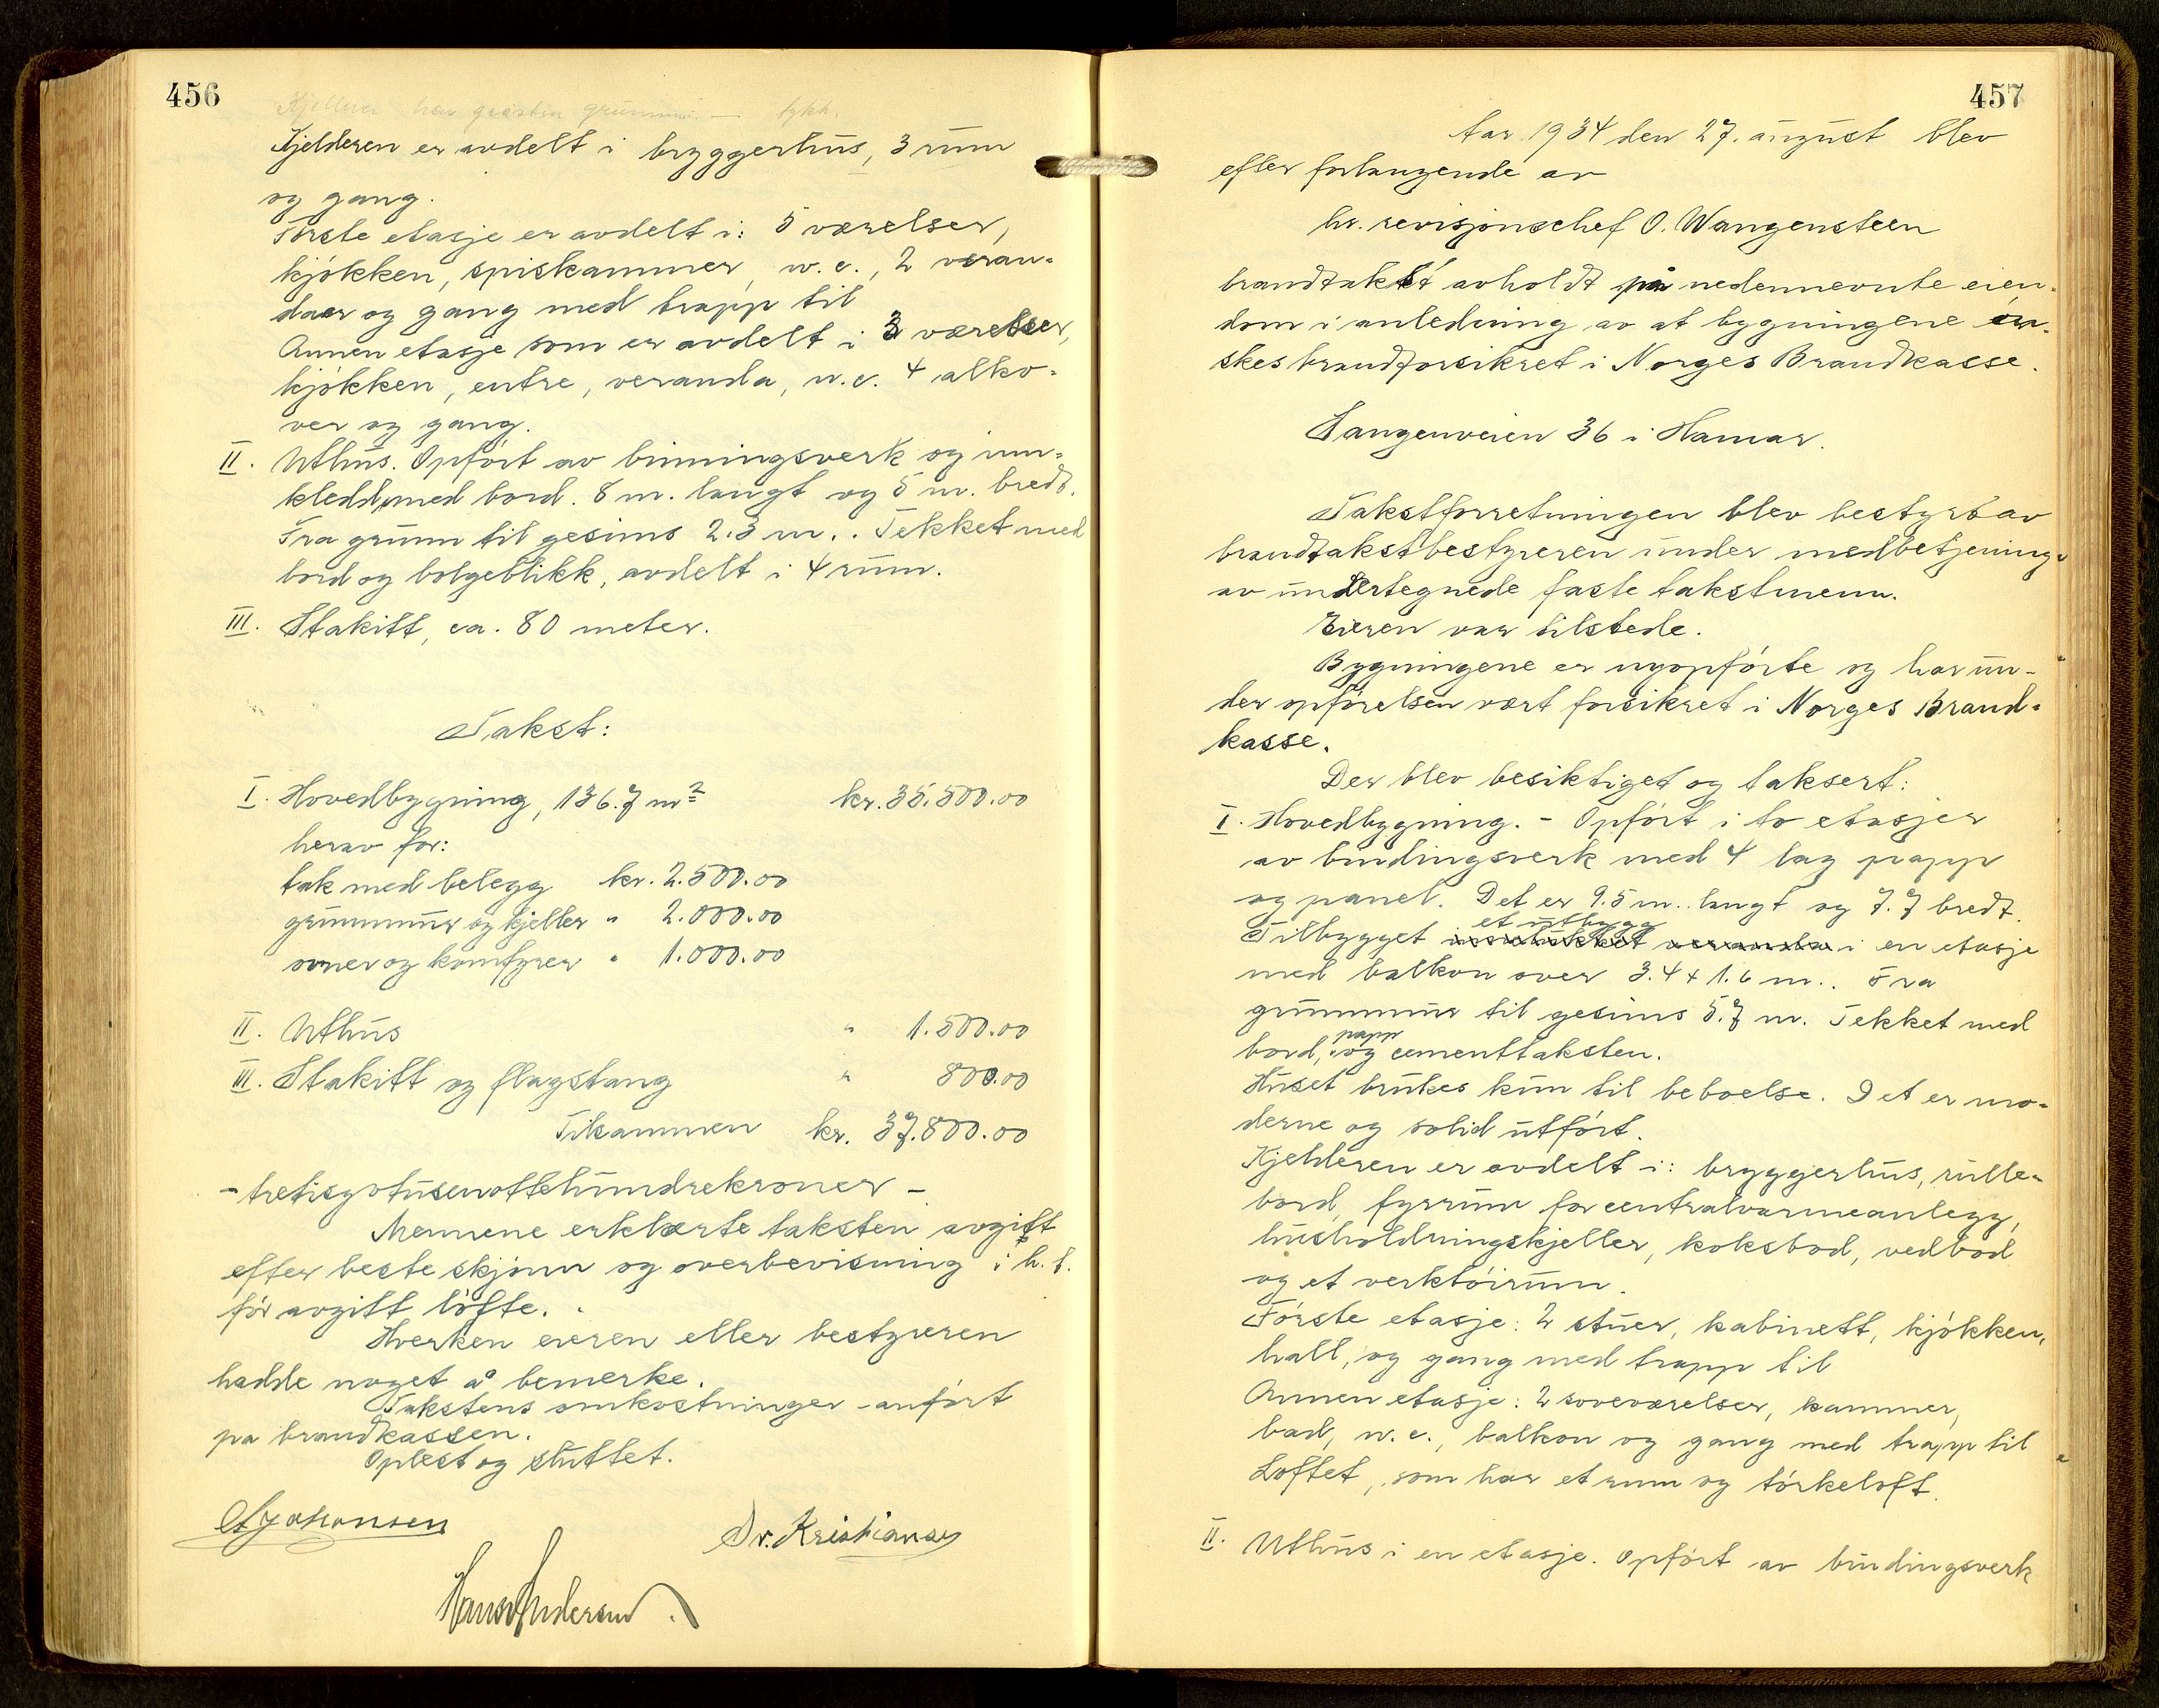 456
Kjelleren har
Kjelderen er avdelt i bryggerhus, 3 rum
og gang.
Første etasje er avdelt i: 5 værelser,
kjøkken, spiskammer, w.c., 2 veran-
daer og gang med trapp til
Annen etasje som er avdelt i 3 værelser,
kjøkken, entre, veranda, w.c. 4 alko-
ver og gang.
II. Uthus. Opført av binningsverk og inn-
kledd med bord. 8 m. langt og 5 m. bredt.
Fra grunn til gesims 2.3 m.. Tekket med
bord og bølgeblikk, avdelt i 4 rum.
III. Stakitt, ca. 80 meter.
Takst:
I. Hovedbygning, 136.7 m² kr. 35.500.00
herav for:
tak med belegg kr. 2.500.00
grunnmur og kjeller " 2.000.00
ovner og komfyrer " 1.000.00
II. Uthus " 1.500.00
III. Stakitt og flagstang " 800.00
Tilsammen kr. 37.800.00
- tretisyvtusenottehundrekroner -
Mennene erklærte taksten avgitt
efter beste skjønn og overbevisning i h.t.
før avgitt løfte.
Hverken eieren eller bestyreren
hadde noget å bemerke.
Takstens omkostninger anført
pa brandkassen.
Oplest og sluttet.
A Johansen
Dr. Kristiansen
Hans Andersen.
457
Aar 1934 den 27. august blev
efter forlangende av
hr. revisjonschef O. Wangensteen
brandtakst avholdt på nedennevnte eien-
dom i anledning av at bygningene øn-
skes brandforsikret i Norges Brandkasse.
Sangenveien 36 i Hamar.
Takstforretningen blev bestyrt av
brandtakstbestyreren under medbetjening
av undertegnede faste takstmenn.
Eieren var tilstede.
Bygningene er nyopførte og har un-
der opførelsen vært forsikret i Norges Brand-
kasse.
Der blev besiktiget og taksert:
I. Hovedbygning. - Opført i to etasjer
av bindingsverk med 4 lag papp
og panel. Det er 9.5 m. langt og 7.7 bredt.
et utbygg
Tilbygget innelukket veranda i en etasje
med balkon over 3.4 x 1.6 m.. Fra
grunnmur til gesims 5.7 m. Tekket med
papp
bord, og cementtaksten.
Huset brukes kun til beboelse. Det er mo-
derne og solid utført.
Kjelderen er avdelt i: bryggerhus, rulle-
bord, fyrrum for centralvarmeanlegg,
husholdningskjeller, koksbod, vedbod
og et verktøirum.
Første etasje: 2 stuer, kabinett, kjøkken,
hall, og gang med trapp til
Annen etasje: 2 soveværelser, kammer,
bad, w.c., balkon og gang med trapp til
Loftet, som har et rum og tørkeloft.
II. Uthus i en etasje. Opført av bindingsverk